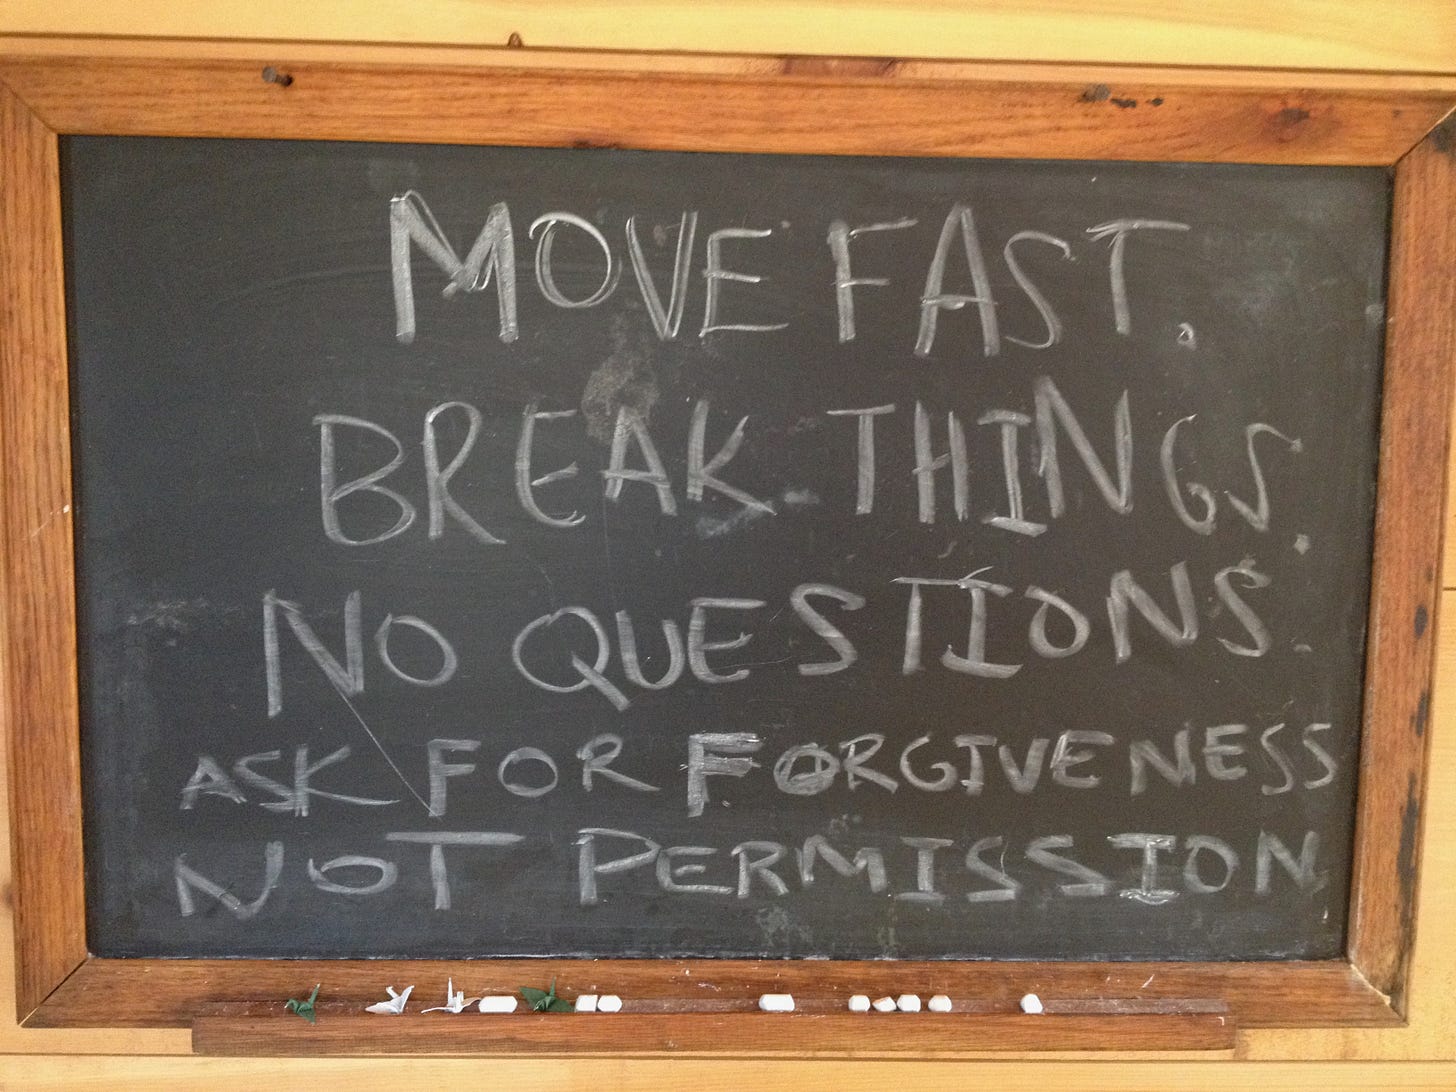 MOVE FAST.
BREAK THINGS.
NO QUESTIONS.
ASK FOR FORGIVENESS
NOT PERMISSION